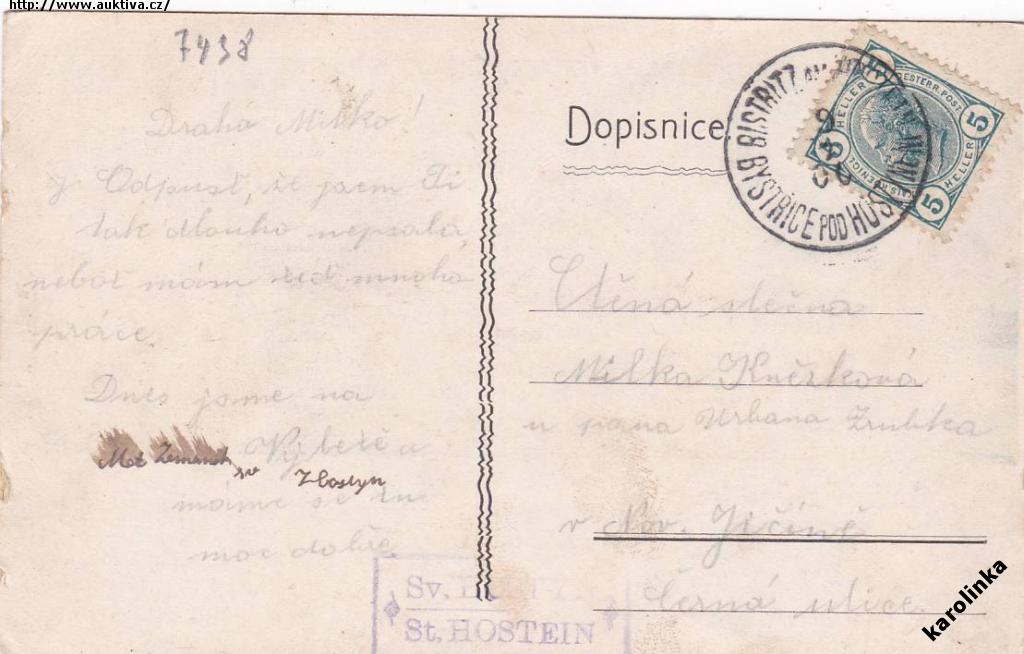 http://www.auktiva.cz/
7438
Drahá Milko!
Odpusť, že jsem Ti
tak dlouho nepsala,
neboť mám teď mnoho
práce.
Dnes jsme na
Výletě a
máme se tu
moc dobře.
Hostyn
Sv.
St. HOSTEIN
Dopisnice.
BISTRITZ AM
BYSTŘICE POD HOST
5 HELLER 5
5 HELLER 5
OESTERR. POST.
Ctěná slečna
Milka Kněžková
u pana Urbana Zrubka
v Nov. Jičíně
Černá ulice.
karolinka